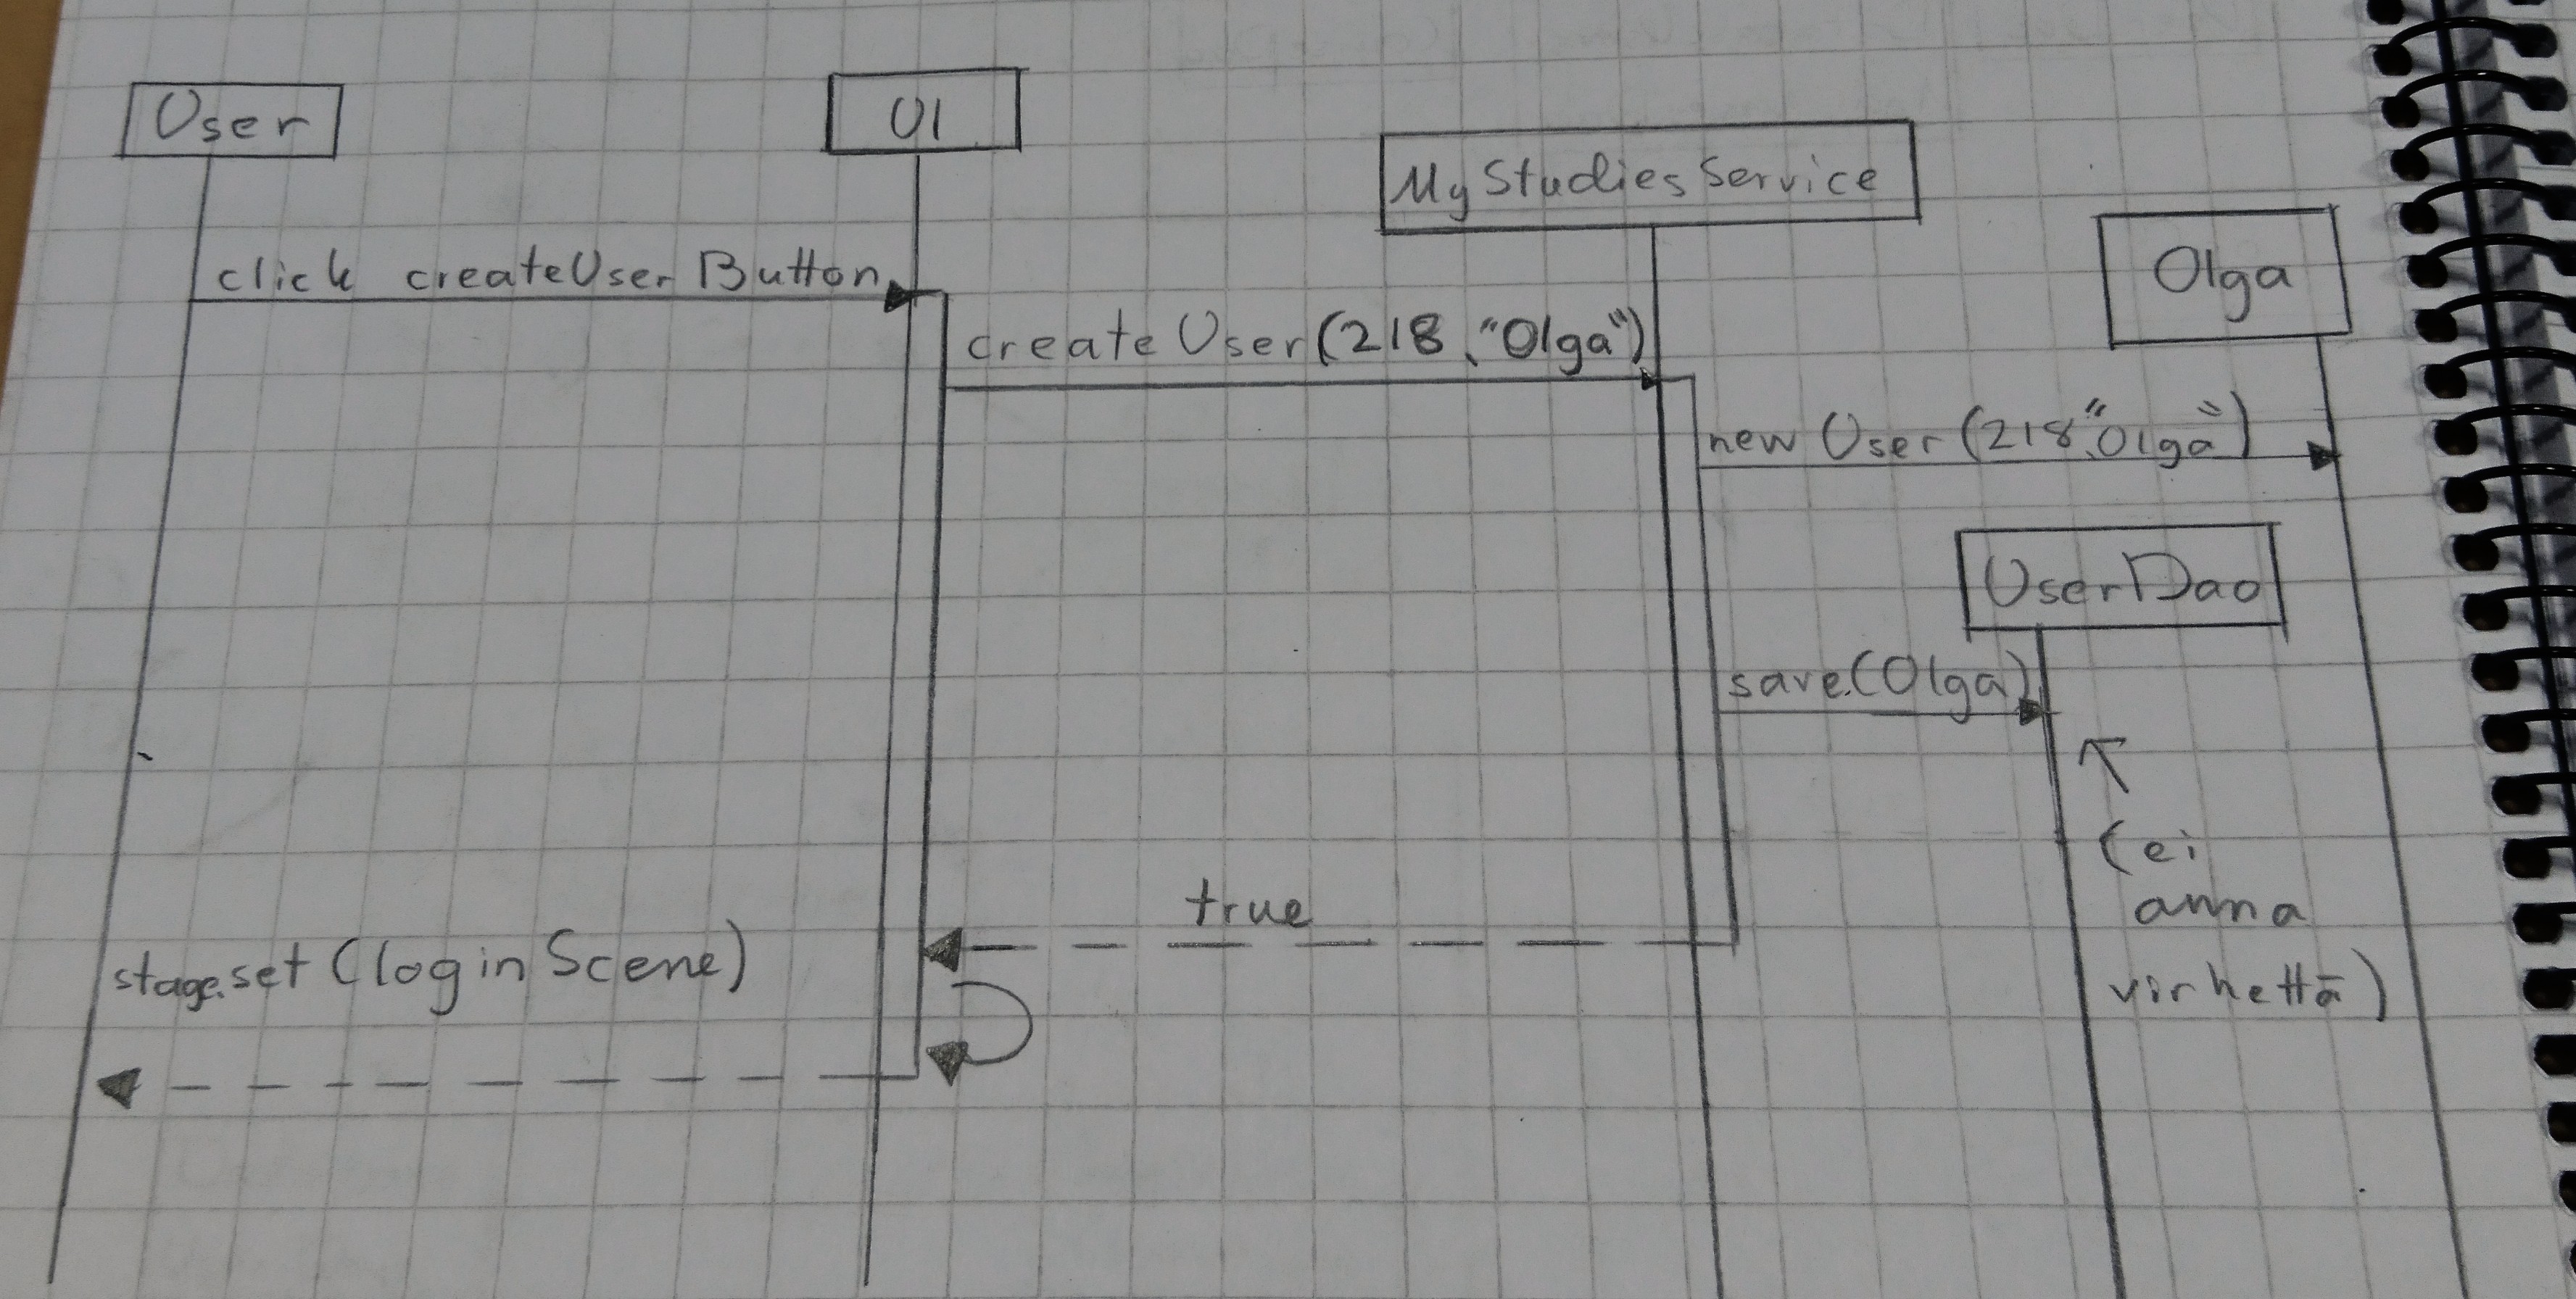 User
UI
MyStudiesService
Olga
click createUserButton
createUser(218,"Olga")
new User(218,"Olga")
UserDao
save(Olga)
(ei
anna
virhettä)
true
stage.set(loginScene)